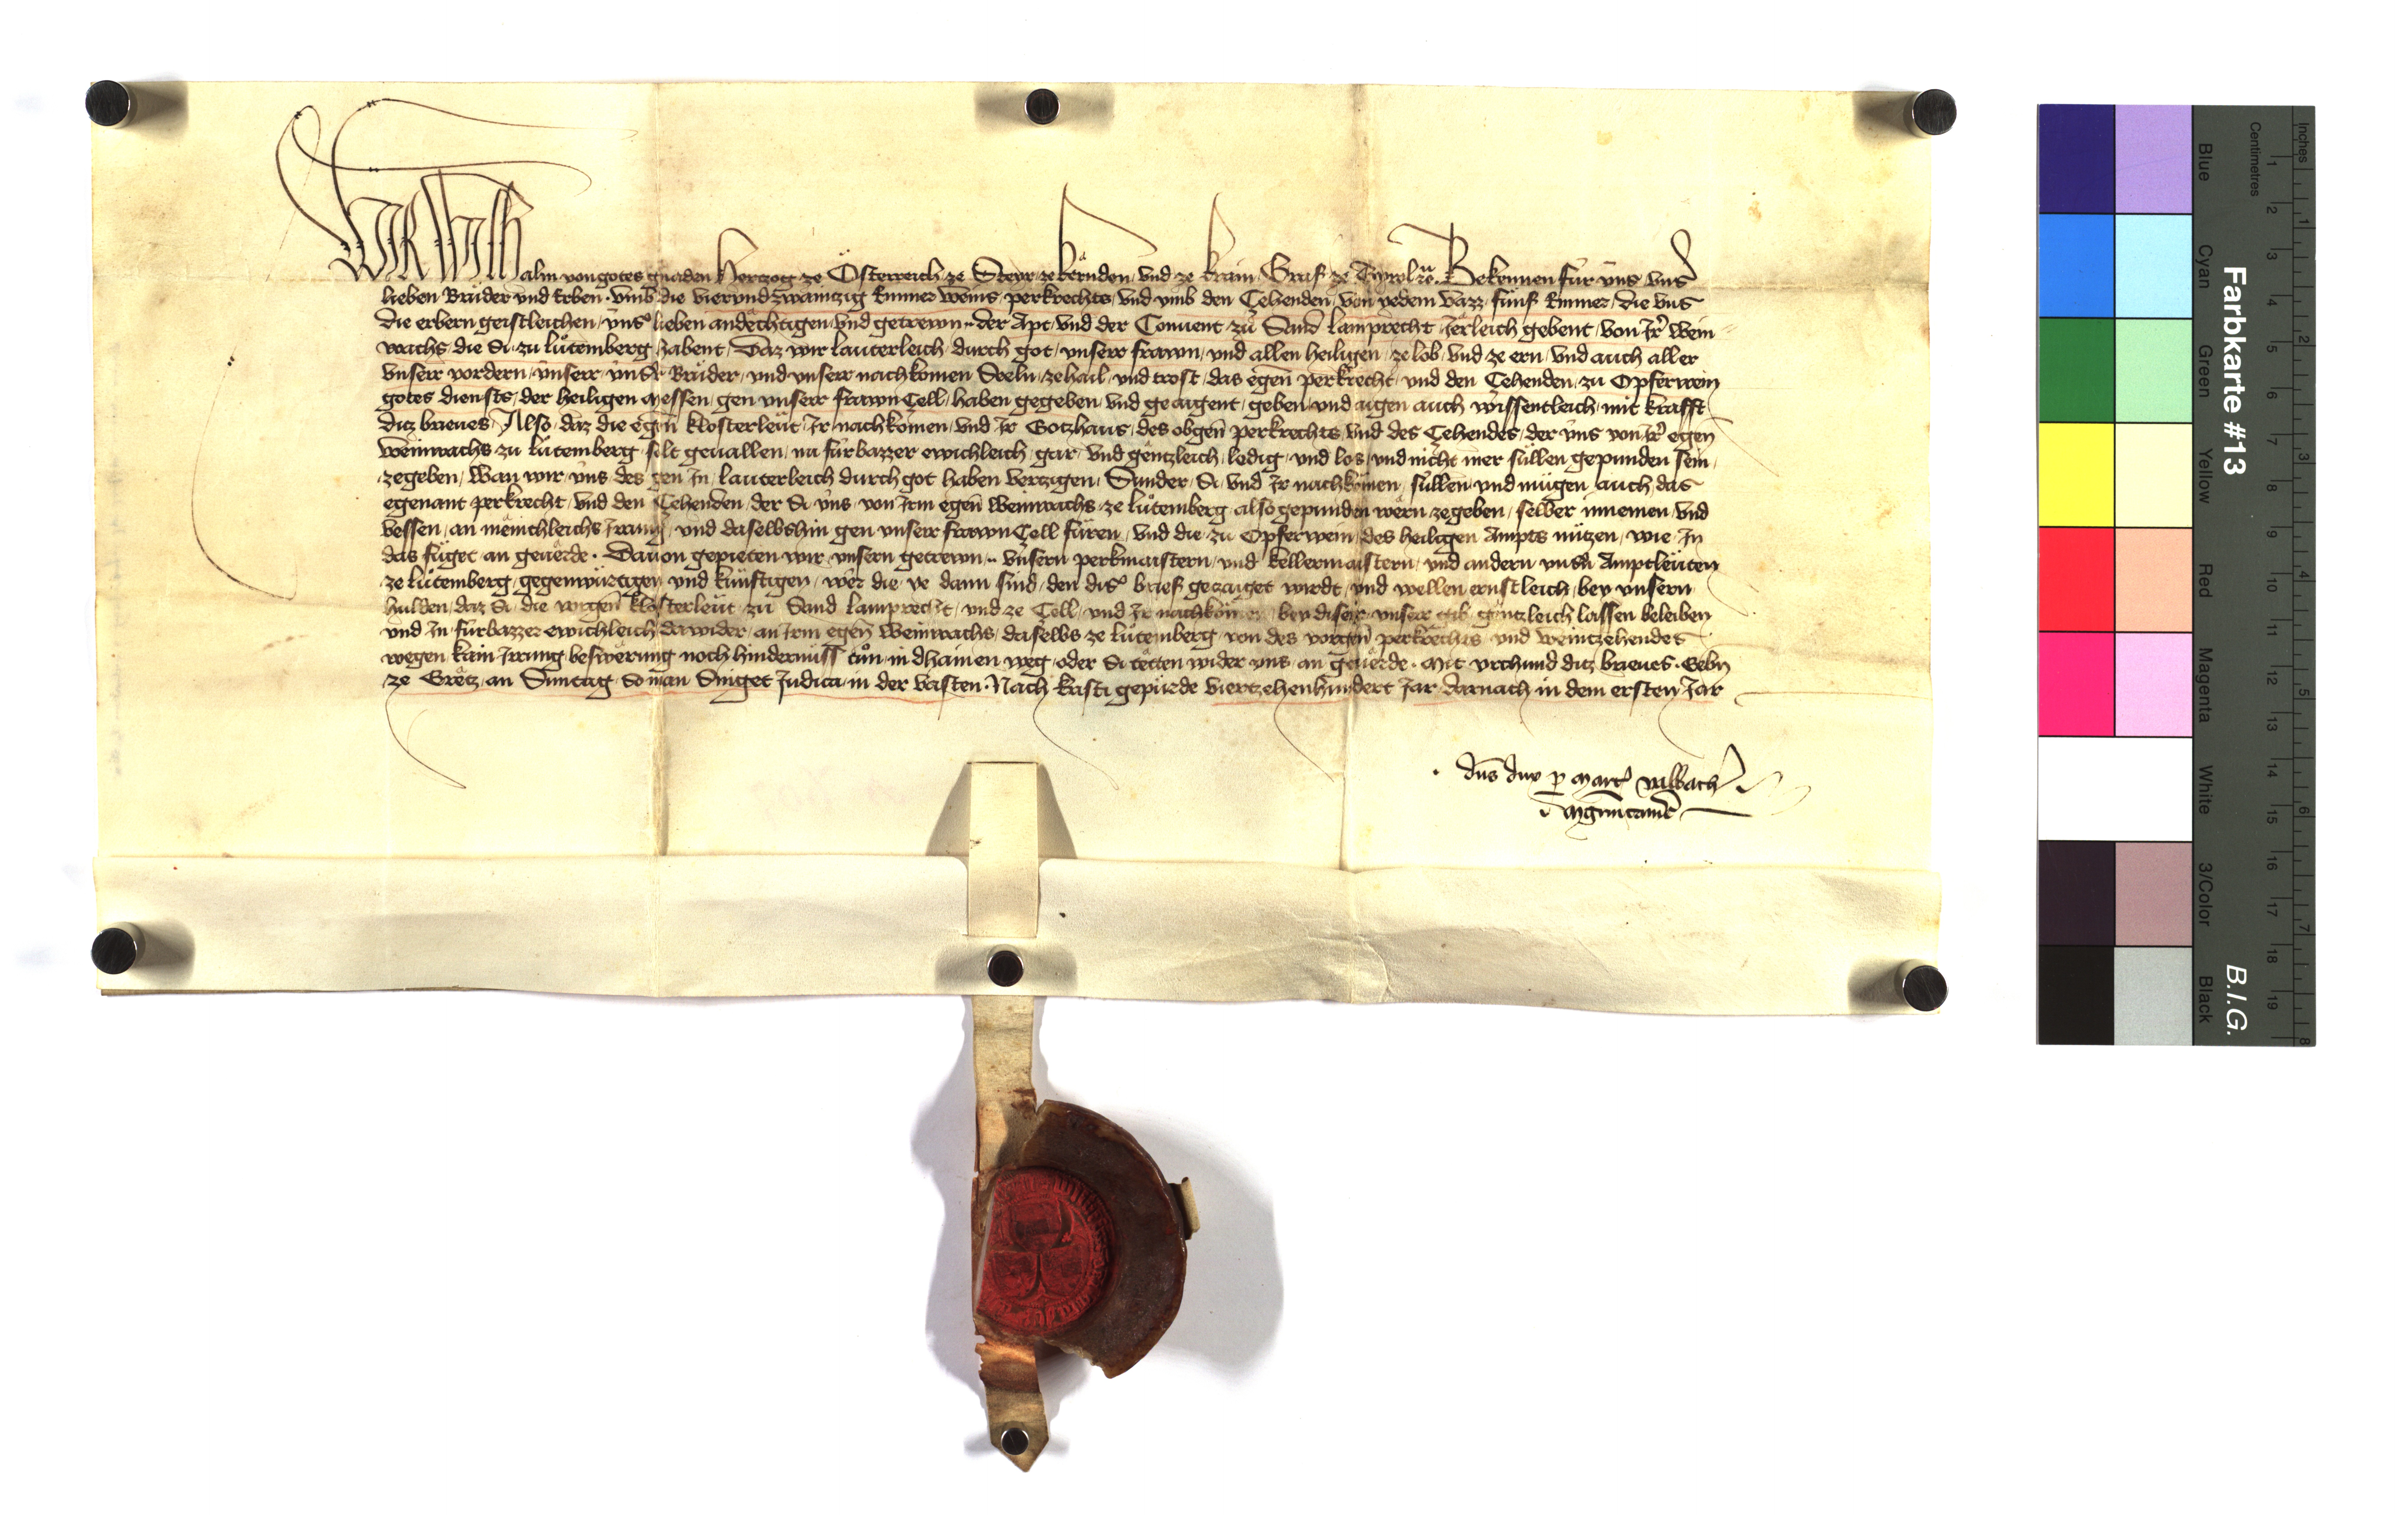 WIR Wilhalm von gotes gnaden Herczog ze Österreich ze Steyr ze kërnden vnd ze krain Graf ze Tyrol ꝛc̃. Bekennen für vns vnser
lieben Brüder vnd Erben vmb die vierundzwainzig Emmer weins perkrechts vnd vmb den Cehenden von yedem vazz fünf Emmer die vns
die erbern geistleichen vnser lieben andëchtigen vnd getrewn .. der Apt vnd der Conuent zu Sand lamprecht Jerleich gebent von Jr wein
wachs die Si zu lütemberg habent Daz wir lauterleich durch got vnserr frawn vnd allen heiligen ze lob vnd ze ern vnd auch aller
vnserr vordern vnserr vnsr Brüder vnd vnserr nachkomen Seeln ze hail vnd trost das egen̄ perkrecht vnd den Cehenden zu Opferwein
gotes diensts der heiligen messen gen vnserr frawn Cell haben gegeben vnd geaigent geben vnd aigen auch wissentleich mit krafft
dicz brieues Also daz die egen̄ klosterleüt Jr nachkomen vnd Jr Gotzhaus des obgen̄ perkrechts vnd des Cehendes der vns von Jr egen̄
weinwachs zu lütemberg solt geuallen nu fürbazzer ewichleich gar vnd gentzleich ledig vnd los vnd nicht mer süllen gepunden sein
zegeben Wan wir vns des gen Jn lauterleich durch got haben verzigen Sunder Si vnd Jr nachkömen süllen vnd mügen auch das
egenant perkrecht vnd den Cehenden der Si vns von Jrm egen̄ weinwachs ze lütemberg also gepunden wërn zegeben selber innemen vnd
vessen an mënichleichs Jrrung vnd daselbshin gen vnserr frawn Cell füren vnd die zu Opferwein des heiligen Ampts nützen wie Jn
das füget an geuërde. Dauon gepieten wir vnsern getrewn .. vnsern perkmaistern vnd kellermaistern vnd andern vnsn̄ Amptleüten
ze lütemberg gegenwürtigen vnd künftigen wer die ye dann sind den diser brief gezaiget wirdt vnd wellen ernstleich bey vnsern
hulden daz Si die vorgen̄ klosterleüt zu Sand lamprecht vnd ze Cell vnd Jr nachkömen bey diser vnser gib gentzleich lassen beleiben
vnd Jn fürbazzer ewichleich dawider an Jrm egen̄ weinwachs daselbs ze lütemberg von des vorgen̄ perkrechts vnd weintzehendes
wegen kain Jrrung beswërung noch hindernüss tün in dhainen weg oder Si tetten wider vns an geuërde. Mit vrchund dicz brieues. Gebn̄
ze Gretz an Suntag so man Singet Judica in der vasten. Nach kristi gepürde vierzehenhundert Jar darnach in dem ersten Jar
dn̄s dux p mart
mgrm̄ camer̄
Farbkarte #13
B.I.G.
Blue
Cyan
Green
Yellow
Red
Magenta
White
3/Color
Black
Centimetres
1 2 3 4 5 6 7 8 9 10 11 12 13 14 15 16 17 18 19
Inches
1 2 3 4 5 6 7 8